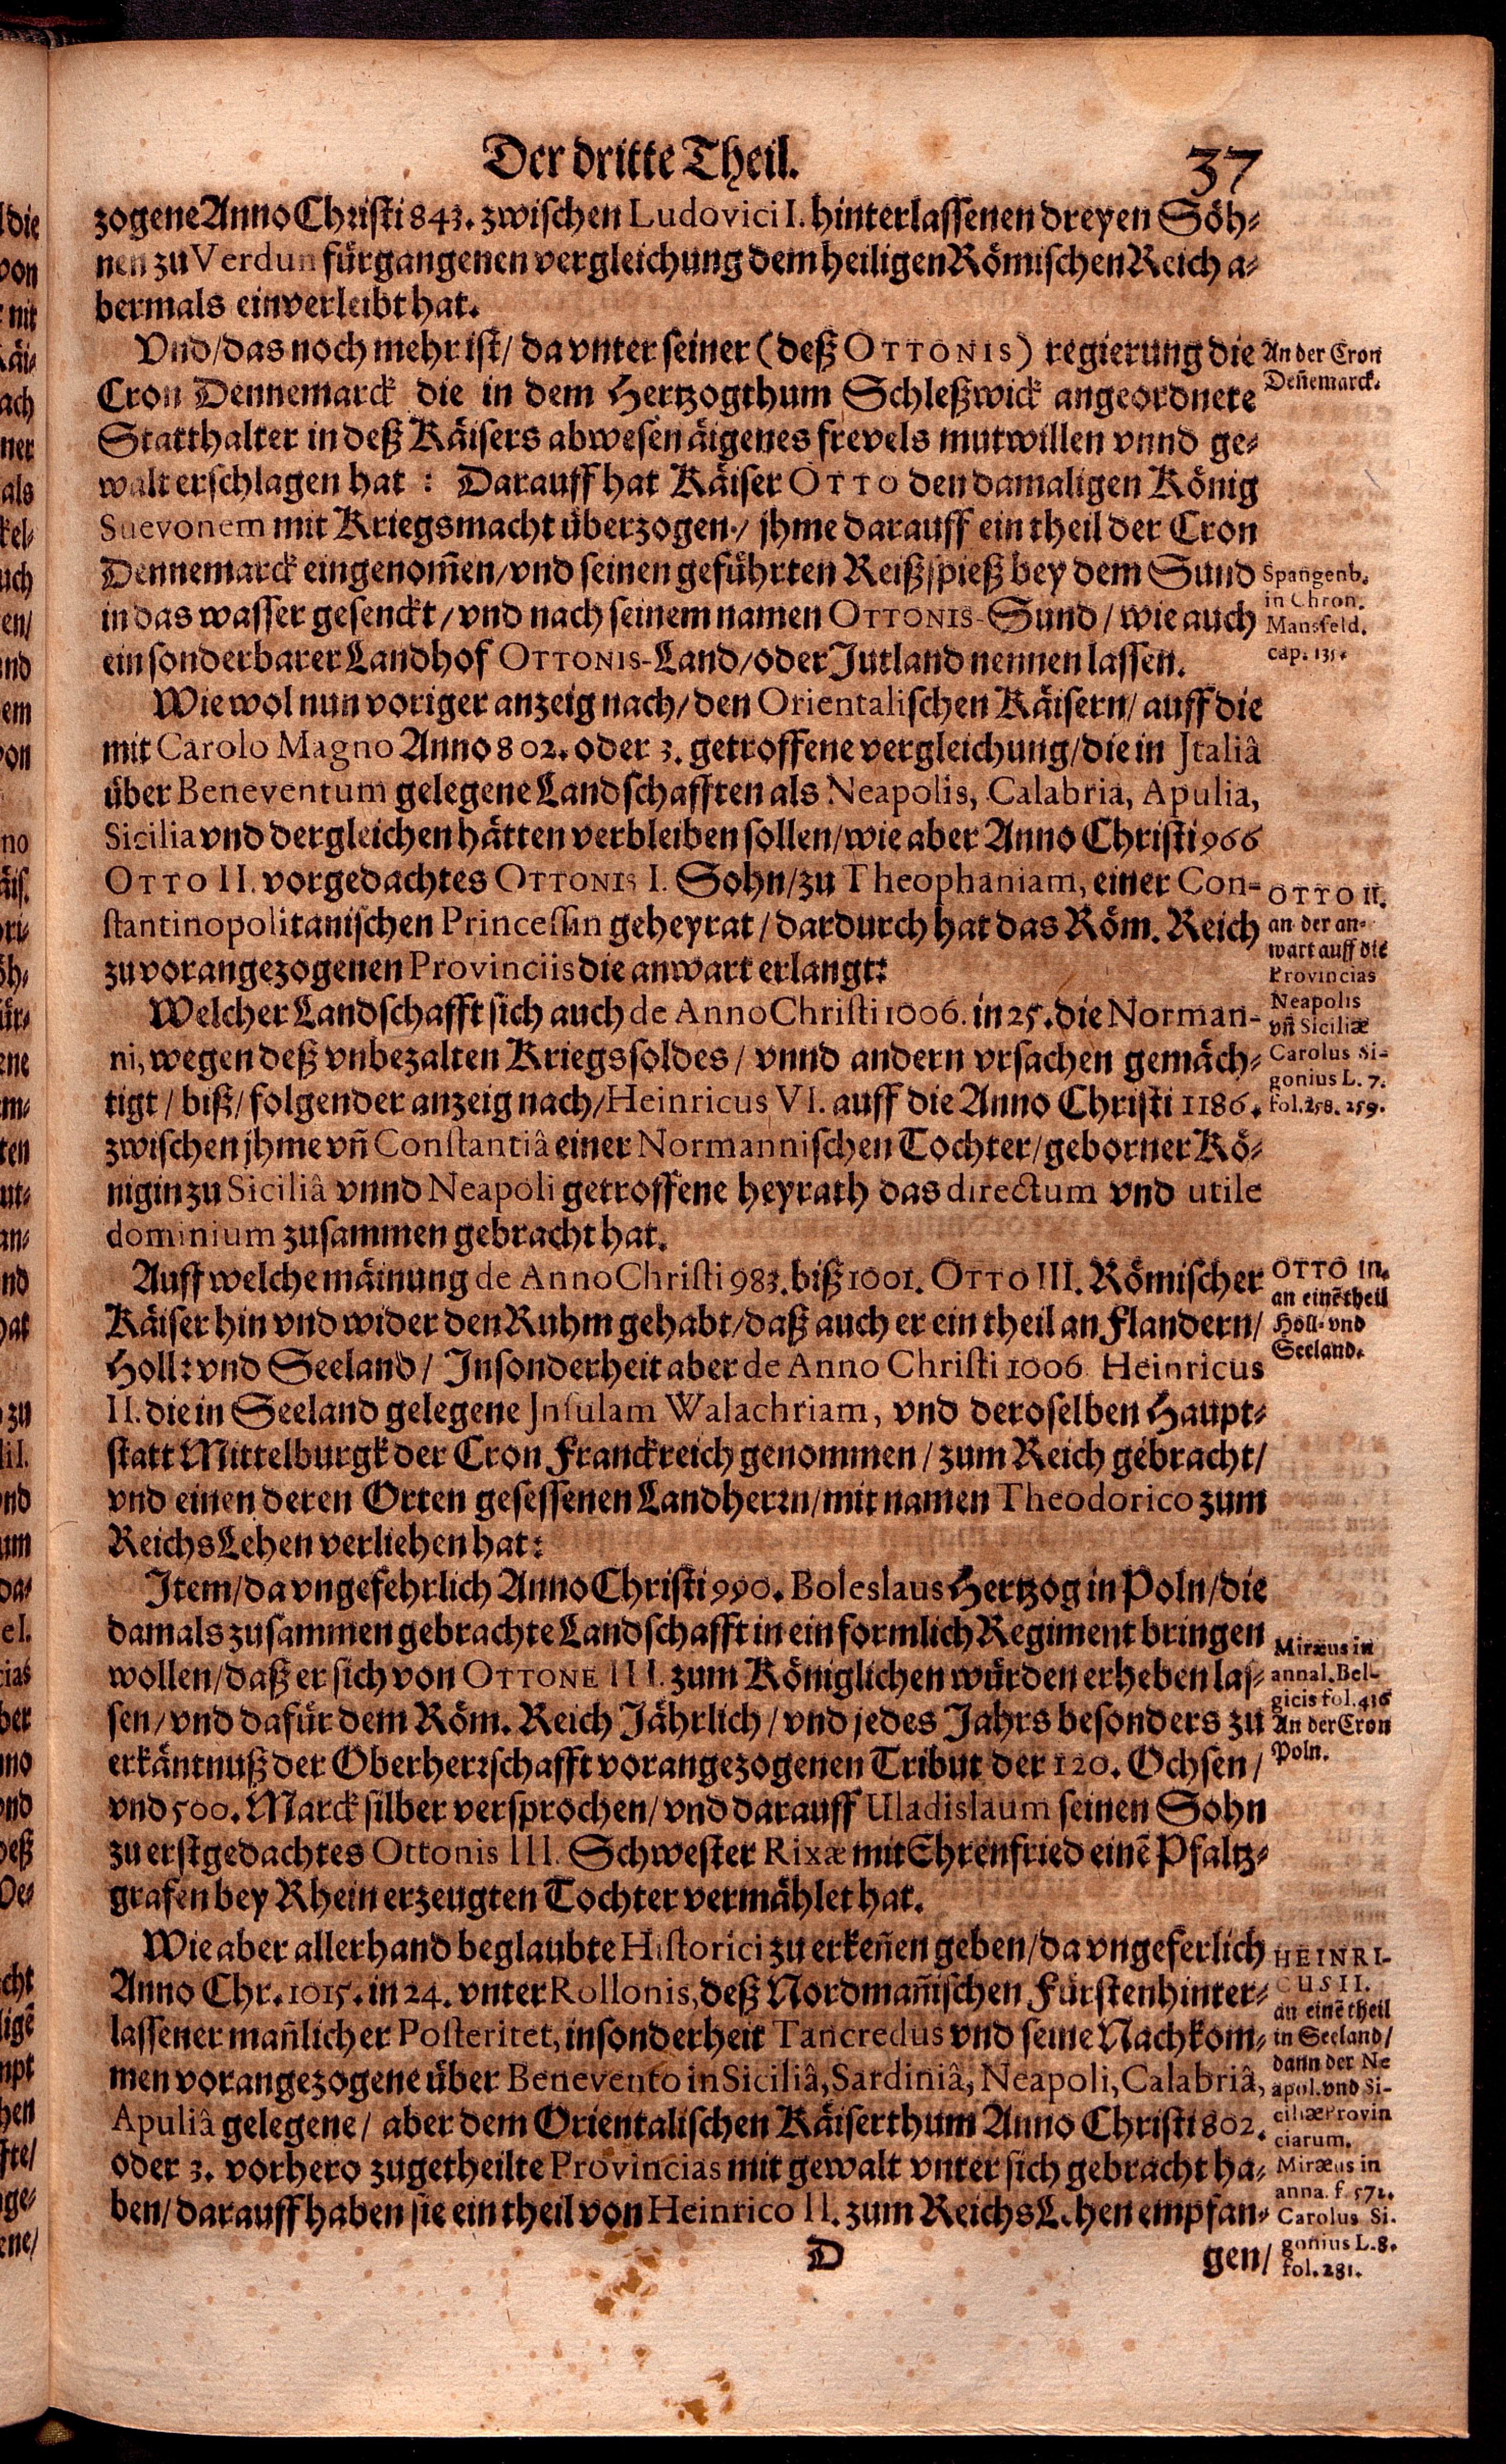 Der dritte Theil.
37
zogene Anno Christi 843. zwischen Ludovici I. hinterlassenen dreyen Söh-
nen zu Verdun fürgangenen vergleichung dem heiligen Römischen Reich a-
bermals einverleibt hat.
Vnd/ das noch mehr ist/ da vnter seiner (deß OTTONIS) regierung die
Cron Dennemarck die in dem Hertzogthum Schleßwick angeordnete
Statthalter in deß Käisers abwesen äigenes frevels mutwillen vnnd ge-
walt erschlagen hat: Darauff hat Käiser OTTO den damaligen König
Suevonem mit Kriegsmacht überzogen/ jhme darauff ein theil der Cron
Dennemarck eingenom̃en/ vnd seinen geführten Reißspieß bey dem Sund
in das wasser gesenckt/ vnd nach seinem namen OTTONIS-Sund/ wie auch
ein sonderbarer Landhof OTTONIS-Land/ oder Jutland nennen lassen.
Wie wol nun voriger anzeig nach/ den Orientalischen Käisern/ auff die
mit Carolo Magno Anno 802. oder 3. getroffene vergleichung/ die in Jtaliâ
über Beneventum gelegene Landschafften als Neapolis, Calabria, Apulia,
Sicilia vnd dergleichen hätten verbleiben sollen/ wie aber Anno Christi 966
OTTO II. vorgedachtes OTTONIS I. Sohn/ zu Theophaniam, einer Con-
stantinopolitanischen Princessin geheyrat/ dardurch hat das Röm. Reich
zu vorangezogenen Provinciis die anwart erlangt:
Welcher Landschafft sich auch de Anno Christi 1006. in 25. die Norman-
ni, wegen deß vnbezalten Kriegssoldes/ vnnd andern vrsachen gemäch-
tigt/ biß/ folgender anzeig nach/ Heinricus VI. auff die Anno Christi 1186.
zwischen jhme vn̄ Constantiâ einer Normannischen Tochter/ geborner Kö-
nigin zu Siciliâ vnnd Neapoli getroffene heyrath das directum vnd utile
dominium zusammen gebracht hat.
Auff welche mäinung de Anno Christi 983. biß 1001. OTTO III. Römischer
Käiser hin vnd wider den Ruhm gehabt/ daß auch er ein theil an Flandern/
Holl: vnd Seeland/ Insonderheit aber de Anno Christi 1006 Heinricus
II. die in Seeland gelegene Jnsulam Walachriam, vnd deroselben Haupt-
statt Mittelburgk der Cron Franckreich genommen/ zum Reich gebracht/
vnd einen deren Orten gesessenen Landherrn/ mit namen Theodorico zum
ReichsLehen verliehen hat:
Item/ da vngefehrlich Anno Christi 990. Boleslaus Hertzog in Poln/ die
damals zusammen gebrachte Landschafft in ein formlich Regiment bringen
wollen/ daß er sich von OTTONE III. zum Königlichen würden erheben las-
sen/ vnd dafür dem Röm. Reich Jährlich/ vnd jedes Jahrs besonders zu
erkäntnuß der Oberherrschafft vorangezogenen Tribut der 120. Ochsen/
vnd 500. Marck silber versprochen/ vnd darauff Uladislaum seinen Sohn
zu erstgedachtes Ottonis III. Schwester Rixæ mit Ehrenfried einē Pfaltz-
grafen bey Rhein erzeugten Tochter vermählet hat.
Wie aber allerhand beglaubte Historici zu erkeñen geben/ da vngeferlich
Anno Chr. 1015. in 24. vnter Rollonis, deß Nordmañischen Fürsten hinter-
lassener mañlicher Posteritet, insonderheit Tancredus vnd seine Nachkom-
men vorangezogene über Benevento in Siciliâ, Sardiniâ, Neapoli, Calabriâ,
Apuliâ gelegene/ aber dem Orientalischen Käiserthum Anno Christi 802.
oder 3. vorhero zugetheilte Provincias mit gewalt vnter sich gebracht ha-
ben/ darauff haben sie ein theil von Heinrico II. zum ReichsLehen empfan-
D
gen/
An der Cron
Deñemarck.
Spangenb.
in Chron.
Mansfeld.
cap. 131.
OTTO II.
an der an-
wart auff die
Provincias
Neapolis
vn̄ Siciliæ
Carolus Si-
gonius L. 7.
fol. 258. 259.
OTTO III.
an einē theil
Holl- vnd
Seeland.
Miræus in
annal. Bel-
gicis fol. 436
An der Cron
Poln.
HEINRI-
CUS II.
an einē theil
in Seeland/
dann der Ne
apol. vnd Si-
ciliæ Provin
ciarum.
Miræus in
anna. f. 572.
Carolus Si-
gonius L. 8.
fol. 281.